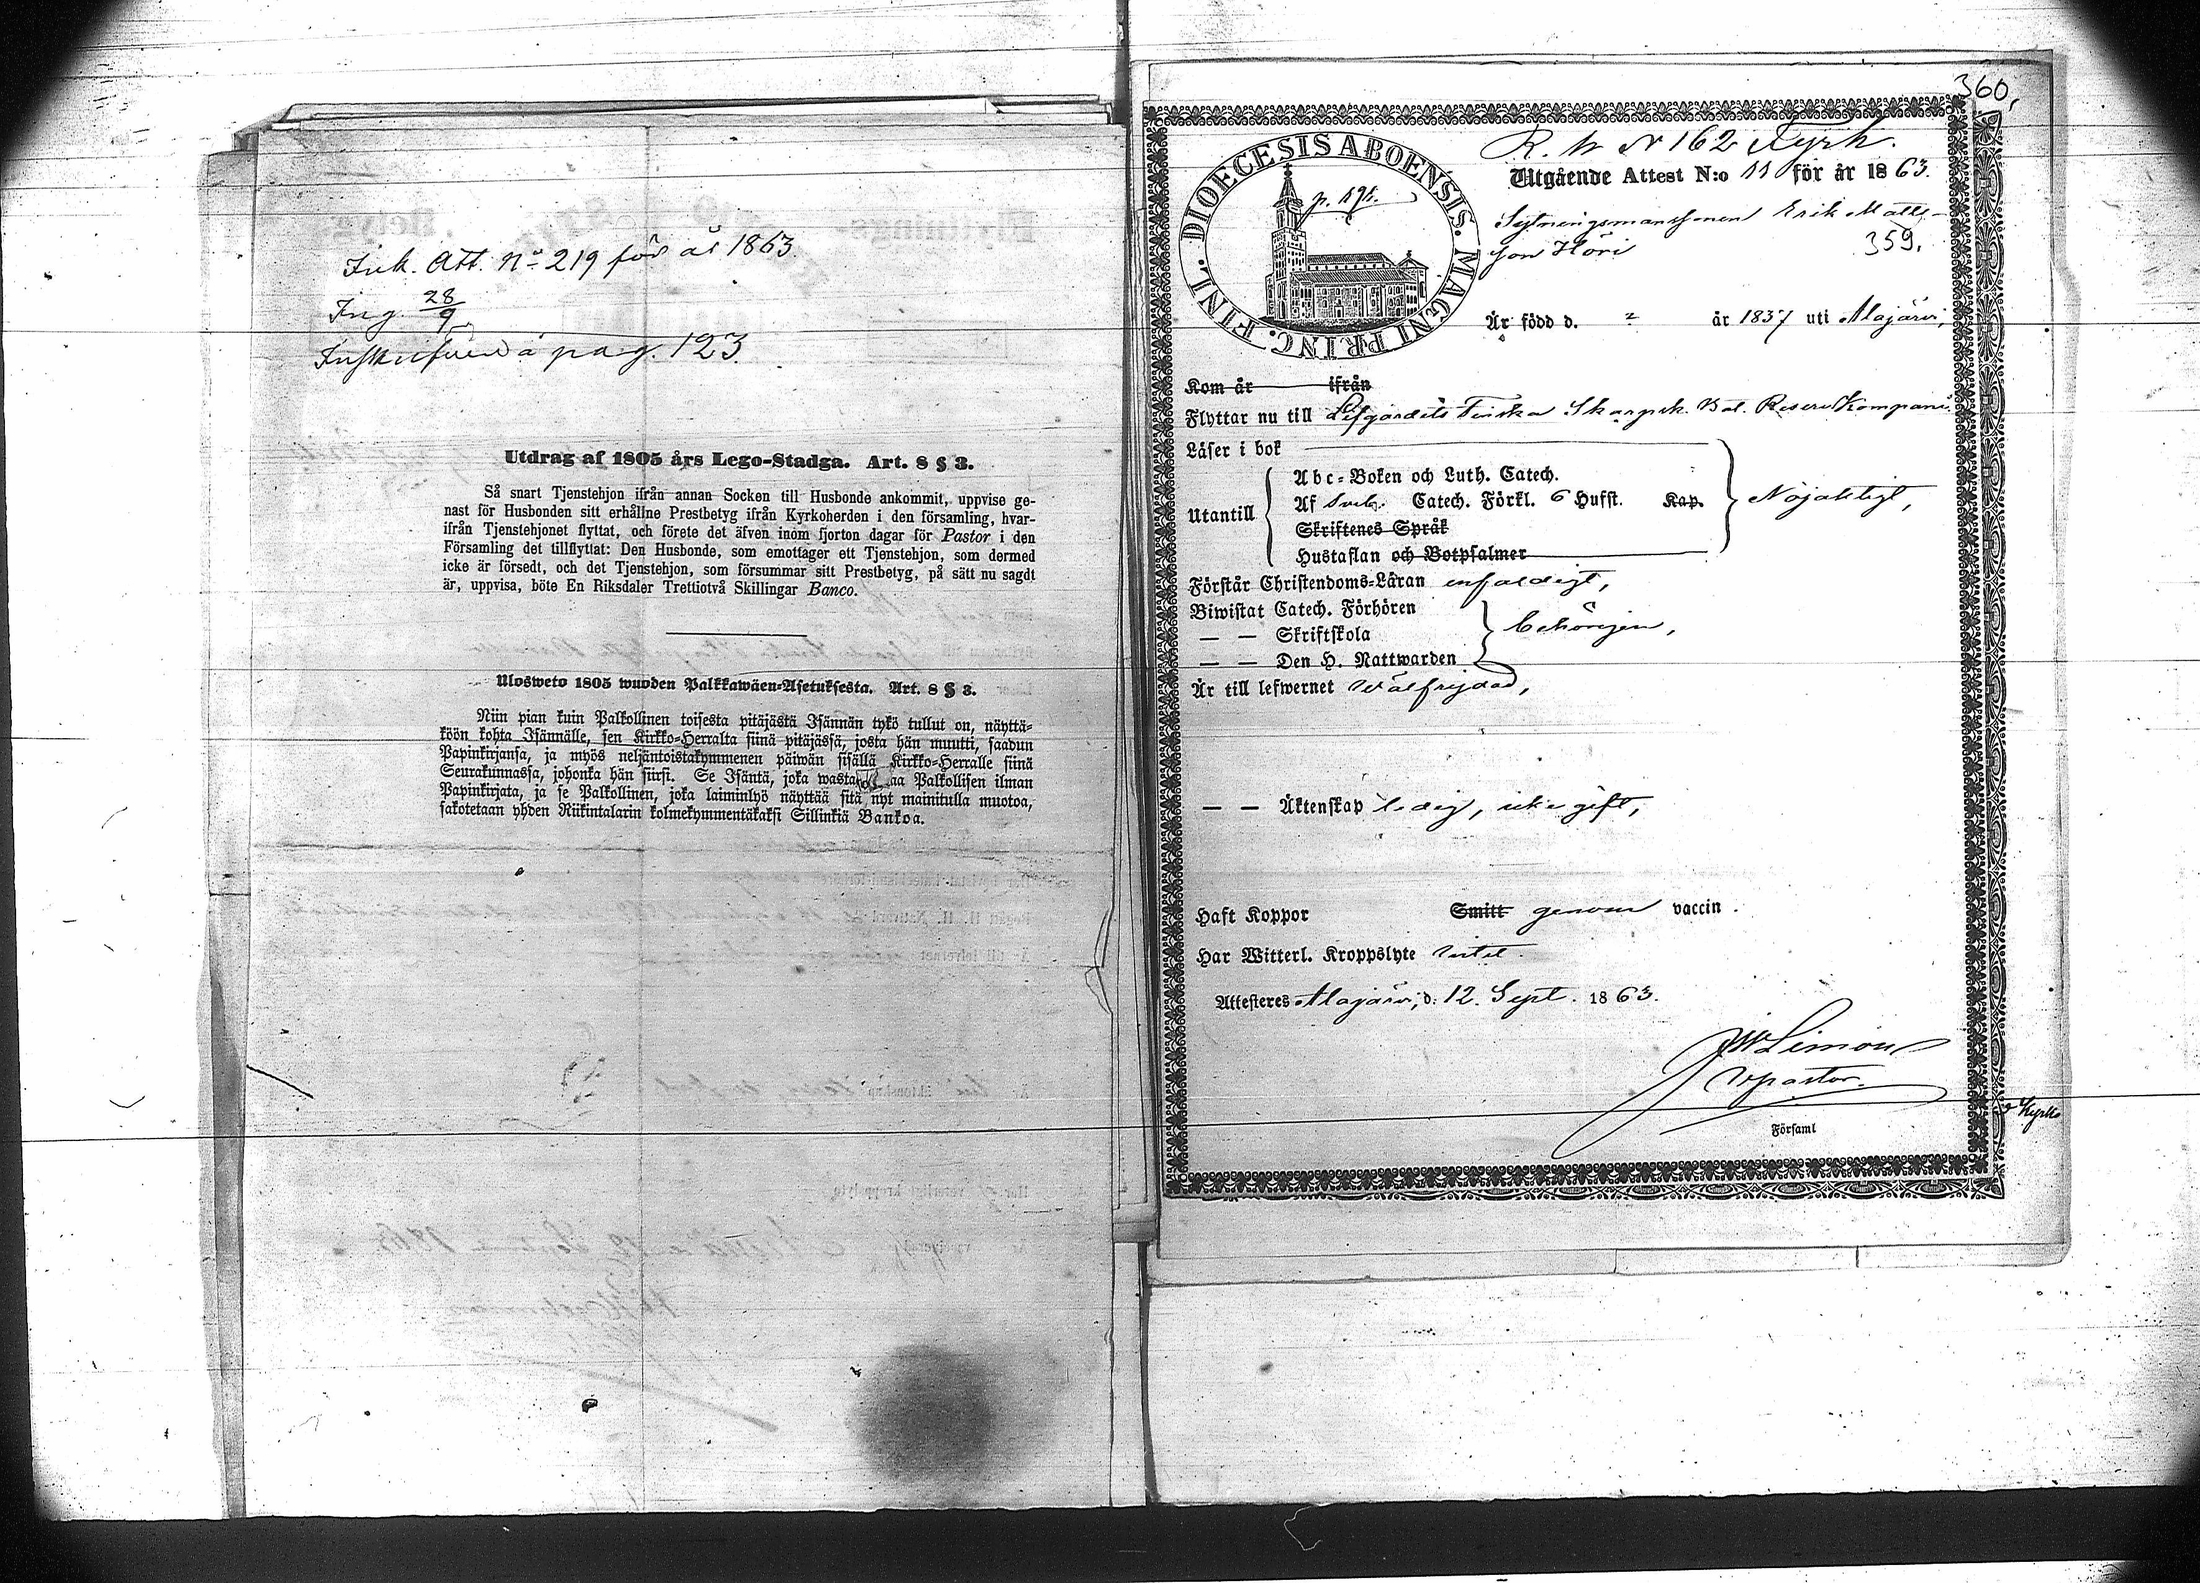 Ink. Att. No 219 för år 1863.
Ing. 28/9
Inskrifven å pag. 123.
Utdrag af 1805 års Lego-Stadga. Art. 8 § 3.
Så snart Tjenstehjon ifrån annan Socken till Husbonde ankommit, uppvise ge-
nast för Husbonden sitt erhållne Prestbetyg ifrån Kyrkoherden i den församling, hvar-
ifrån Tjenstehjonet flyttat, och förete det äfven inom fjorton dagar för Pastor i den
Församling det tillflyttat: Den Husbonde, som emottager ett Tjenstehjon, som dermed
icke är försedt, och det Tjenstehjon, som försummar sitt Prestbetyg, på sätt nu sagdt
är, uppvisa, böte En Riksdaler Trettiotvå Skillingar Banco.
Ulosweto 1805 wuoden Palkkawäen-Asetuksesta. Art. 8 § 3.
Niin pian kuin Palkollinen toisesta pitäjästä Isännän tykö tullut on, näyttä-
köön kohta Isännälle, sen Kirkko-Herralta siinä pitäjässä, josta hän muutti, saadun
Papinkirjansa, ja myös neljäntoistakymmenen päiwän sisällä Kirkko-Herralle siinä
Seurakunnassa, johonka hän siirsi. Se Isäntä, joka wastaanottaa Palkollisen ilman
Papinkirjata, ja se Palkollinen, joka laiminlyö näyttää sitä nyt mainitulla muotoa,
sakotetaan yhden Riikintalarin kolmekymmentäkaksi Sillinkiä Bankoa.
360.
R. N:o 162 Kyrk.
DIOECESIS ABOENSIS. MAGNI PRINC. FINL.
p. 191.
Utgående Attest N:o 11 för år 1863.
Sytningsmanssonen Erik Matts-
son Höri 359.
Är född d. 2 år 1837 uti Alajärvi,
Kom år ifrån
Flyttar nu till Lifgardets Finska Skarpsk. Bat. Reserv Kompani
Läser i bok
Abc-Boken och Luth. Catech.
Utantill Af Sveb. Catech. Förkl. 6 Hufst. Kap. Nöjaktigt,
Skriftenes Språk
Hustaflan och Botpsalmer
Förstår Christendoms-Läran enfaldigt,
Biwistat Catech. Förhören
— — Skriftskola behörigen,
— — Den H. Nattwarden
Är till lefwernet wälfrejdad,
— — Äktenskap ledig, icke gift,
Haft Koppor Smitt genom vaccin.
Har Witterl. Kroppslyte intet.
Attesteres Alajärvi, d. 12 Sept. 1863.
JW Limon
v pastor.
Församl